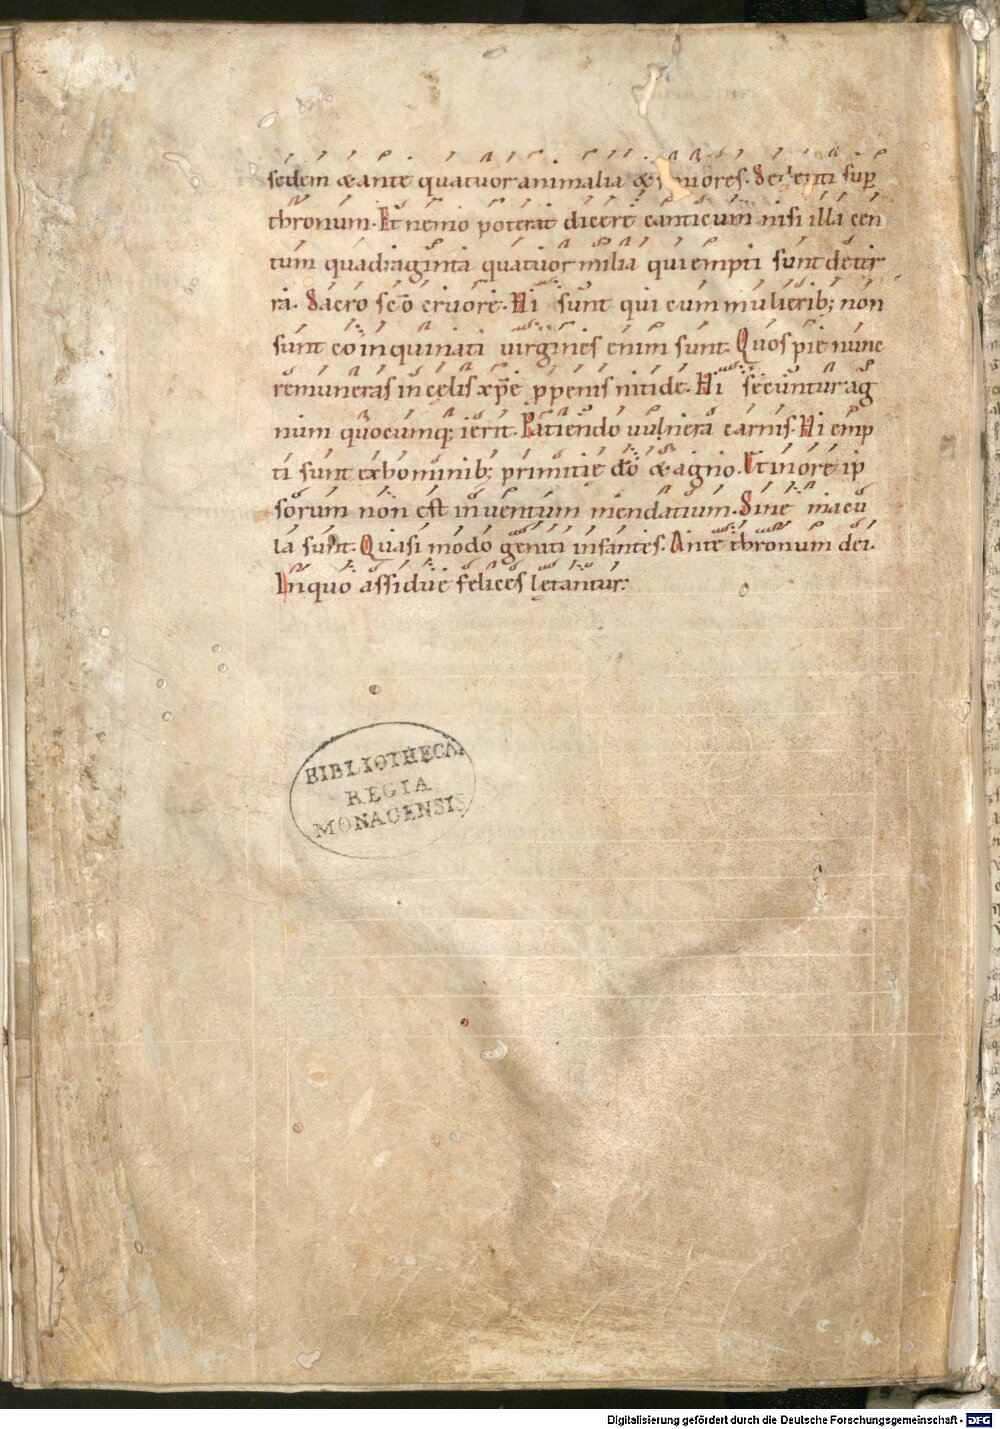 sedem & ante quatuor animalia & seniores. Sedenti sup
thronum. Et nemo poterat dicere canticum nisi illa cen
tum quadraginta quatuor milia qui empti sunt de ter
ra. Sacro sc̄o cruore. Hi sunt qui cum mulierib; non
sunt coinquinati virgines enim sunt. Quos pie nunc
remuneras in cęlis xp̄e p pennis nitide. Hi secuntur ag
num quocumq; ierit. Patiendo uulnera carnis. Hi emp
ti sunt ex hominib; primitię dō & agno. Et in ore ip
sorum non est inventum mendatium. Sine macu
la sunt. Quasi modo geniti infantes. Ante thronum dei.
In quo assidue felices lętantur.
BIBLIOTHECA
REGIA
MONACENSIS
Digitalisierung gefördert durch die Deutsche Forschungsgemeinschaft - DFG